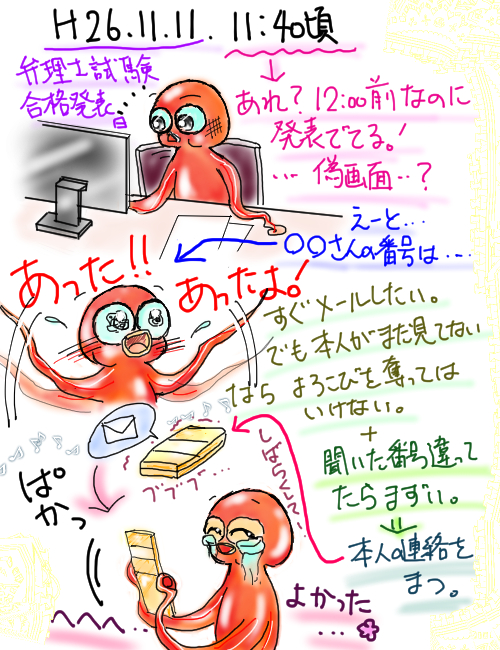 H26.11.11. 11:40頃
弁理士試験
合格発表日
あれ?12:00前なのに
発表でてる!
…偽画面…?
えーと…
〇〇さんの番号は…
あった!!
あったよ!
すぐメールしたい。
でも本人がまだ見てない
なら よろこびを奪っては
いけない。
+
聞いた番号違って
たらまずい。
本人の連絡を
まつ。
しばらくして…
ブブブ…
ぱかっ
へへへ…
よかった
…